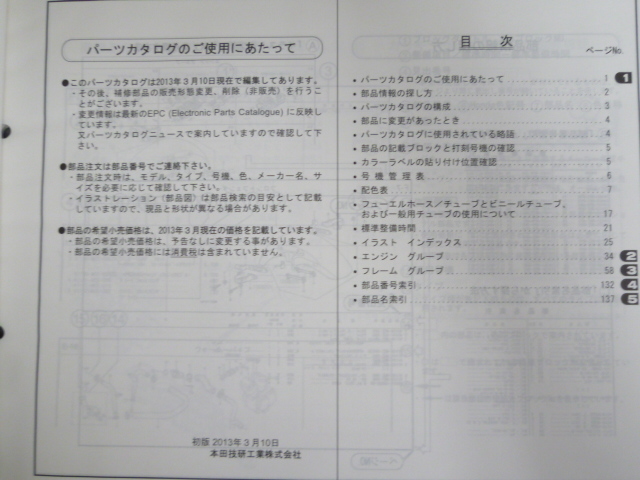 パーツカタログのご使用にあたって
●このパーツカタログは2013年3月10日現在で編集してあります。
・その後、補修部品の販売形態変更、削除（非販売）を行うこ
とがございます。
・変更情報は最新のEPC (Electronic Parts Catalogue) に反映し
ています。
又パーツカタログニュースで案内していますので確認して下
さい。
●部品注文は部品番号でご連絡下さい。
・部品注文時は、モデル、タイプ、号機、色、メーカー名、サ
イズを必要に応じて確認して下さい。
・イラストレーション（部品図）は部品検索の目安として記載
していますので、現品と形状が異なる場合があります。
●部品の希望小売価格は、2013年3月現在の価格を記載しています。
・部品の希望小売価格は、予告なしに変更する事があります。
・部品の希望小売価格には消費税は含まれていません。
初版 2013年3月10日
本田技研工業株式会社
目 次
ページNo.
• パーツカタログのご使用にあたって 1 1
• 部品情報の探し方 2
• パーツカタログの構成 3
• 部品に変更があったとき 4
• パーツカタログに使用されている略語 4
• 部品の記載ブロックと打刻号機の確認 5
• カラーラベルの貼り付け位置確認 5
• 号機管理表 6
• 配色表 7
• フューエルホース／チューブとビニールチューブ、
および一般用チューブの使用について 17
• 標準整備時間 21
• イラスト インデックス 25
• エンジン グループ 34 2
• フレーム グループ 58 3
• 部品番号索引 132 4
• 部品名索引 137 5